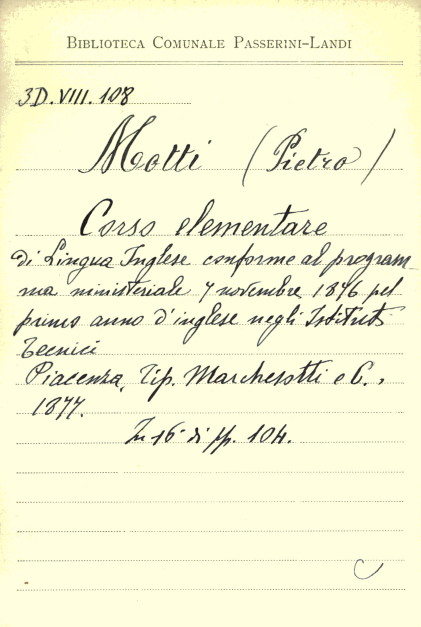 BIBLIOTECA COMUNALE PASSERINI-LANDI
3D.VIII.108
Motti (Pietro)
Corso elementare
di Lingua Inglese conforme al program-
ma ministeriale 7 novembre 1876 pel
primo anno d'inglese negli Istituti
Tecnici
Piacenza, Tip. Marchesotti e C.,
1877.
In 16° di pp. 104.